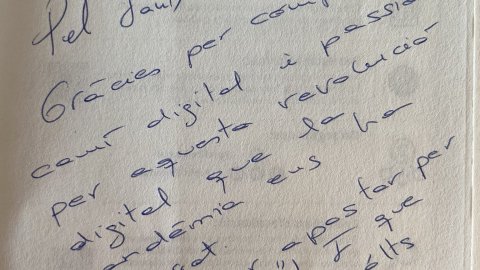 Pel Jau
Gràcies per comp
camí digital i passió
per aquesta revolució
digital que la
andèmia ens ha
at. apostar per
I que
lts